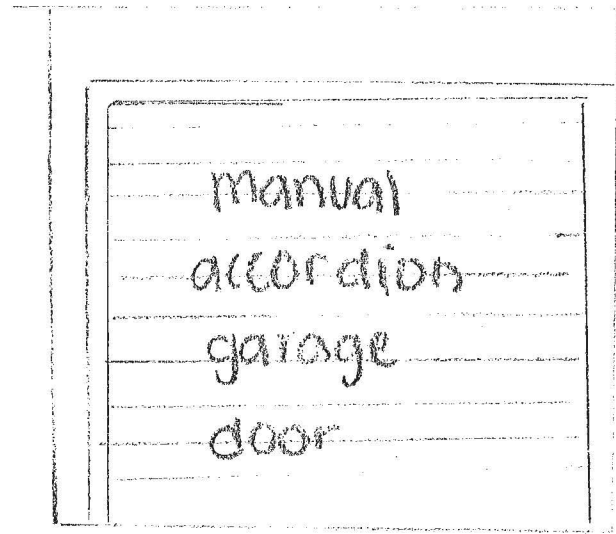 manual
accordion
garage
door